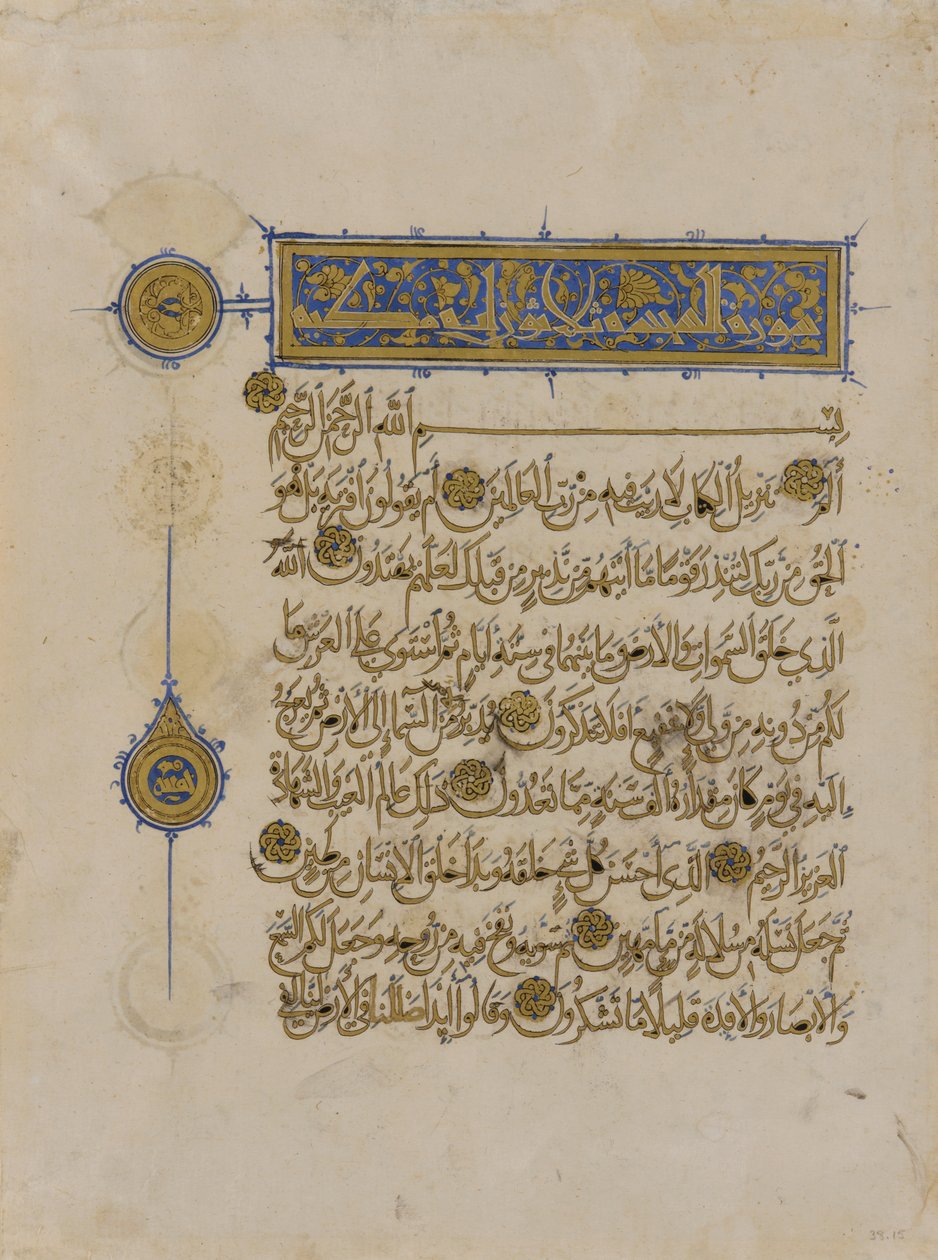 سورة السجدة ثلثون اية مكية
بِسْمِ ٱللَّهِ ٱلرَّحْمَٰنِ ٱلرَّحِيمِ
أَلَمَ تَنْزِيلُ ٱلْكِتَابِ لَا رَيْبَ فِيهِ مِنْ رَبِّ ٱلْعَالَمِينَ أَمْ يَقُولُونَ ٱفْتَرَيهُ بَلْ هُوَ
ٱلْحَقُّ مِنْ رَبِّكَ لِتُنْذِرَ قَوْمًا مَّا أَتَيهُمْ مِّنْ نَّذِيرٍ مِنْ قَبْلِكَ لَعَلَّهُمْ يَهْتَدُونَ ٱللَّهُ
ٱلَّذِي خَلَقَ ٱلسَّمَوَاتِ وَٱلْأَرْضَ وَمَا بَيْنَهُمَا فِي سِتَّةِ أَيَّامٍ ثُمَّ ٱسْتَوَى عَلَى ٱلْعَرْشِ مَا
لَكُمْ مِّنْ دُونِهِ مِنْ وَلِيٍّ وَلَا شَفِيعٍ أَفَلَا تَتَذَكَّرُونَ يُدَبِّرُ ٱلْأَمْرَ مِنَ ٱلسَّمَاءِ إِلَى ٱلْأَرْضِ ثُمَّ يَعْرُجُ
إِلَيْهِ فِي يَوْمٍ كَانَ مِقْدَارُهُ أَلْفَ سَنَةٍ مِمَّا تَعُدُّونَ ذَلِكَ عَالِمُ ٱلْغَيْبِ وَٱلشَّهَادَةِ
ٱلْعَزِيزُ ٱلرَّحِيمُ ٱلَّذِي أَحْسَنَ كُلَّ شَيْءٍ خَلَقَهُ وَبَدَأَ خَلْقَ ٱلْإِنْسَانِ مِنْ طِينٍ
ثُمَّ جَعَلَ نَسْلَهُ مِنْ سُلَالَةٍ مِّنْ مَاءٍ مَهِينٍ ثُمَّ سَوَّيهُ وَنَفَخَ فِيهِ مِنْ رُّوحِهِ وَجَعَلَ لَكُمُ ٱلسَّمْعَ
وَٱلْأَبْصَارَ وَٱلْأَفْئِدَةَ قَلِيلًا مَا تَشْكُرُونَ وَقَالُوا أَئِذَا ضَلَلْنَا فِي ٱلْأَرْضِ أَئِنَّا لَفِي
38.15